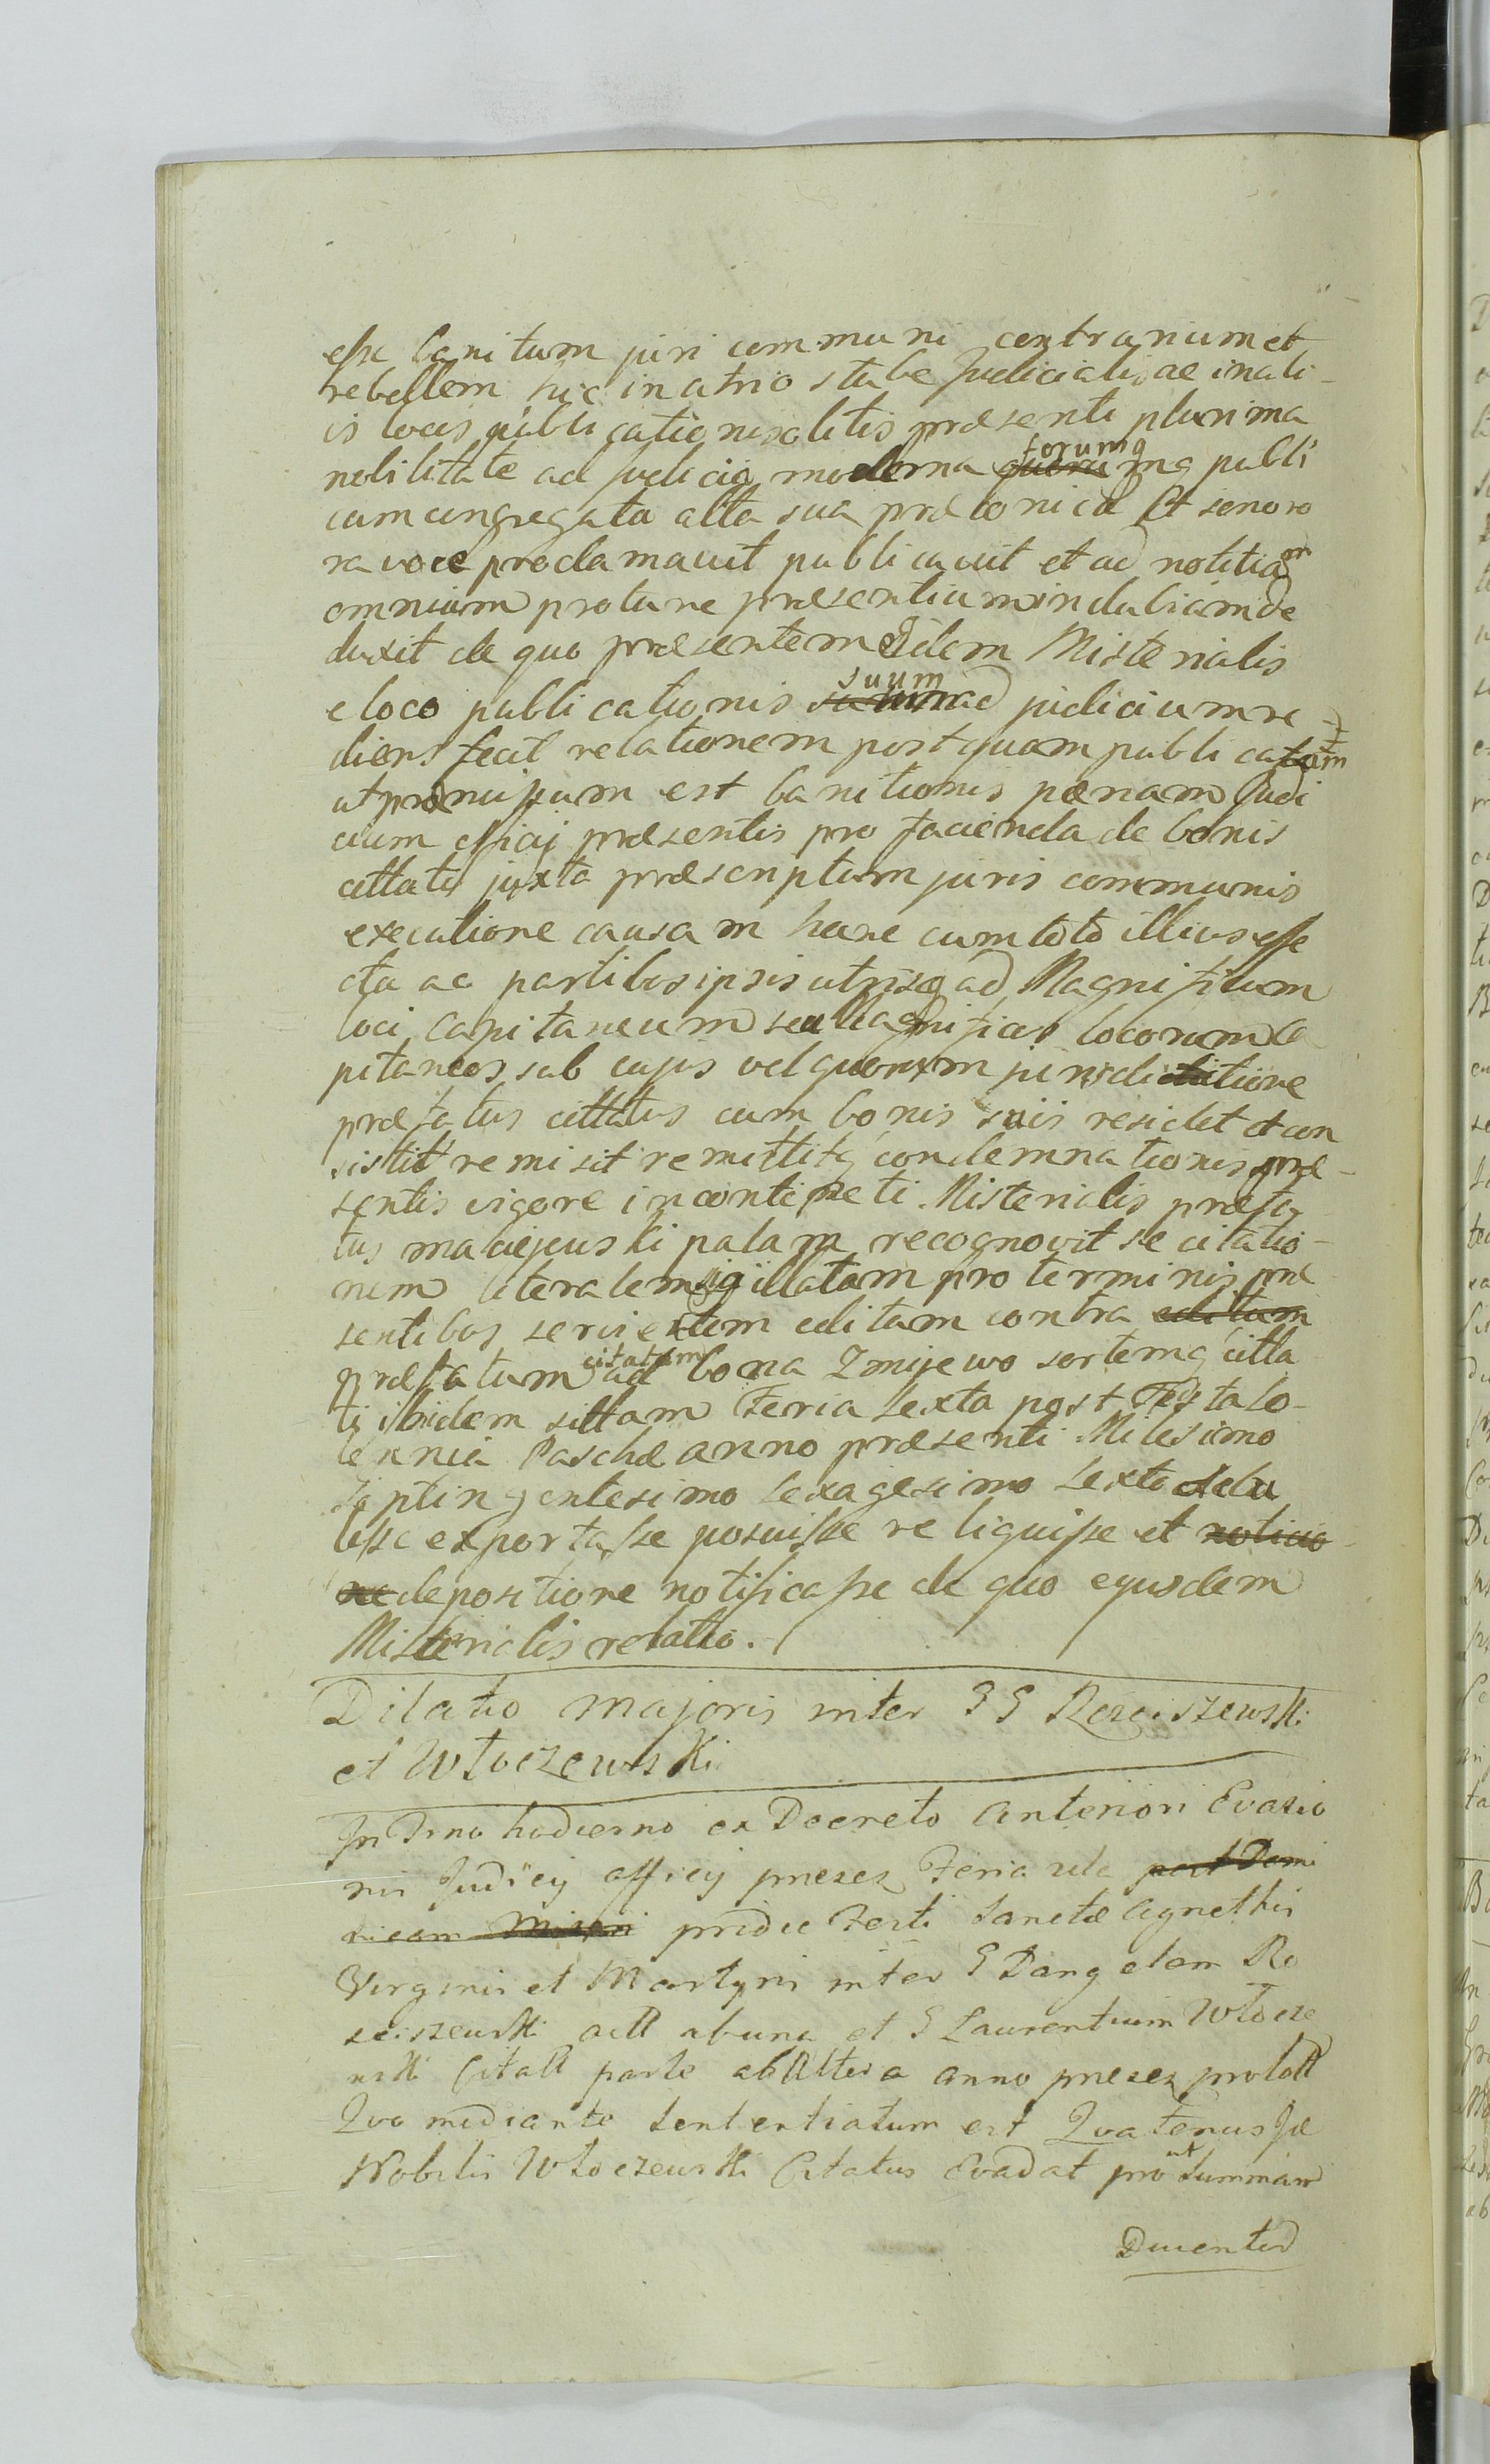 esse banitum juri communi contrarium et
rebellem hic in atrio stubæ Judicialis ac in ali-
is locis publicationi solitis præsenti plurima
nobilitate ad Judicia moderna forumq publi
cum congregata alta sua præconica et sonoro
ra voce proclamavit publicavit et ad notitiam
omnium pro tunc præsentium indubiam de
duxit de quo præsentem Idem Misterialis
e loco publicationis suum ad judicium re-
diens fecit relationem post quam publicatam
ut præmissum est banitionis pænam Judi
cium officij præsentis pro facienda de bonis
cittati juxta præscriptum juris communis
executione causam hanc cum toto illius effe
ctu ac partibus ipsis utrisq ad Magnificum
loci Capitaneum seu Magnificos locorum Ca
pitaneos sub cujus vel quorum jurisdictione
præfatus cittatus cum bonis suis residet et con
sistit remisit remittitq condemnationis præ-
sentis vigore in continenti. Misterialis præfa
tus maciejewski palam recognovit se citatio-
nem literalem sigillatam pro terminis præ
sentibus servientem editam contra editam
præfatum citatum ad bona Zmijewo sortemq citta
ti ibidem sittam Feria Sexta post Festa So-
lennia Paschæ anno præsenti Milesimo
Septingentesimo Sexagesimo Sexto detu
lisse exportasse posuisse reliquisse et
de positione notificasse de quo ejusdem
Misterialis relatio.
Dilatio Majoris inter G G Rosciszewski
et Włoczewski
In Trno hodierno ex Decreto Anteriori Evasio
nis Judicij officij presez Feria 2da post Domi
nicam pridie Festi Sanctæ Agnethis
Virginis et Martyris inter G Pang elam Ro
sciszewski actt ab una et G Laurentium Włocze
wski Citatt parte ab Altera anno presez prolatt
Quo mediante Sententiatum est Quatenus Je
Nobilis Włoczewski Citatus Evadat pro ut Summam
Ducentor